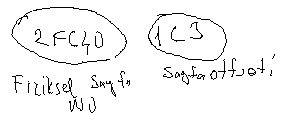 2FC40 1C3
Fiziksel Sayfa Sayfa offseti
NO